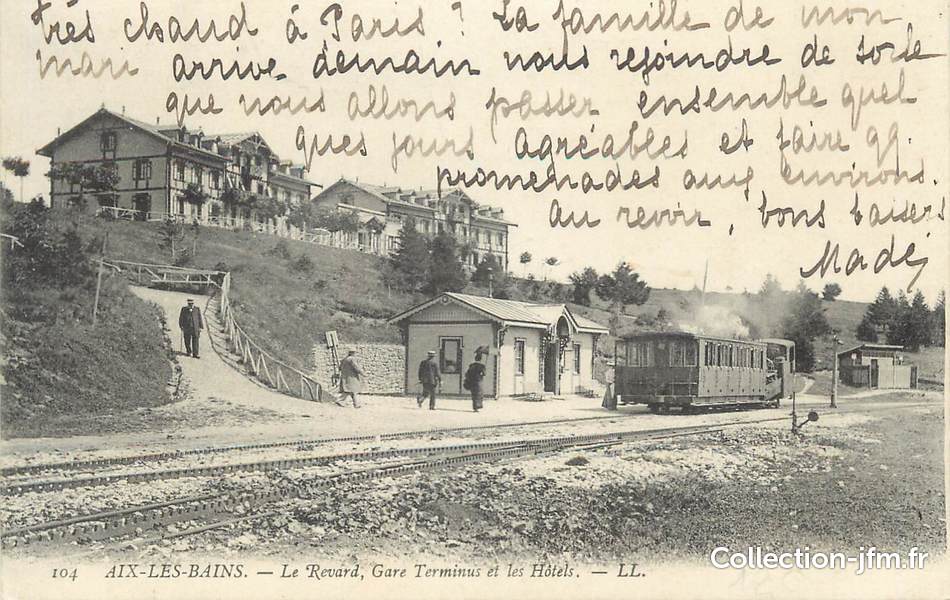 très chaud à Paris ? La famille de mon
mari arrive demain nous rejoindre de sorte
que nous allons passer ensemble quel
ques jours agréables et faire qq.
promenades aux environs.
au revoir, bons baisers
Made
104 AIX-LES-BAINS. — Le Revard, Gare Terminus et les Hôtels. — LL.
Collection-jfm.fr